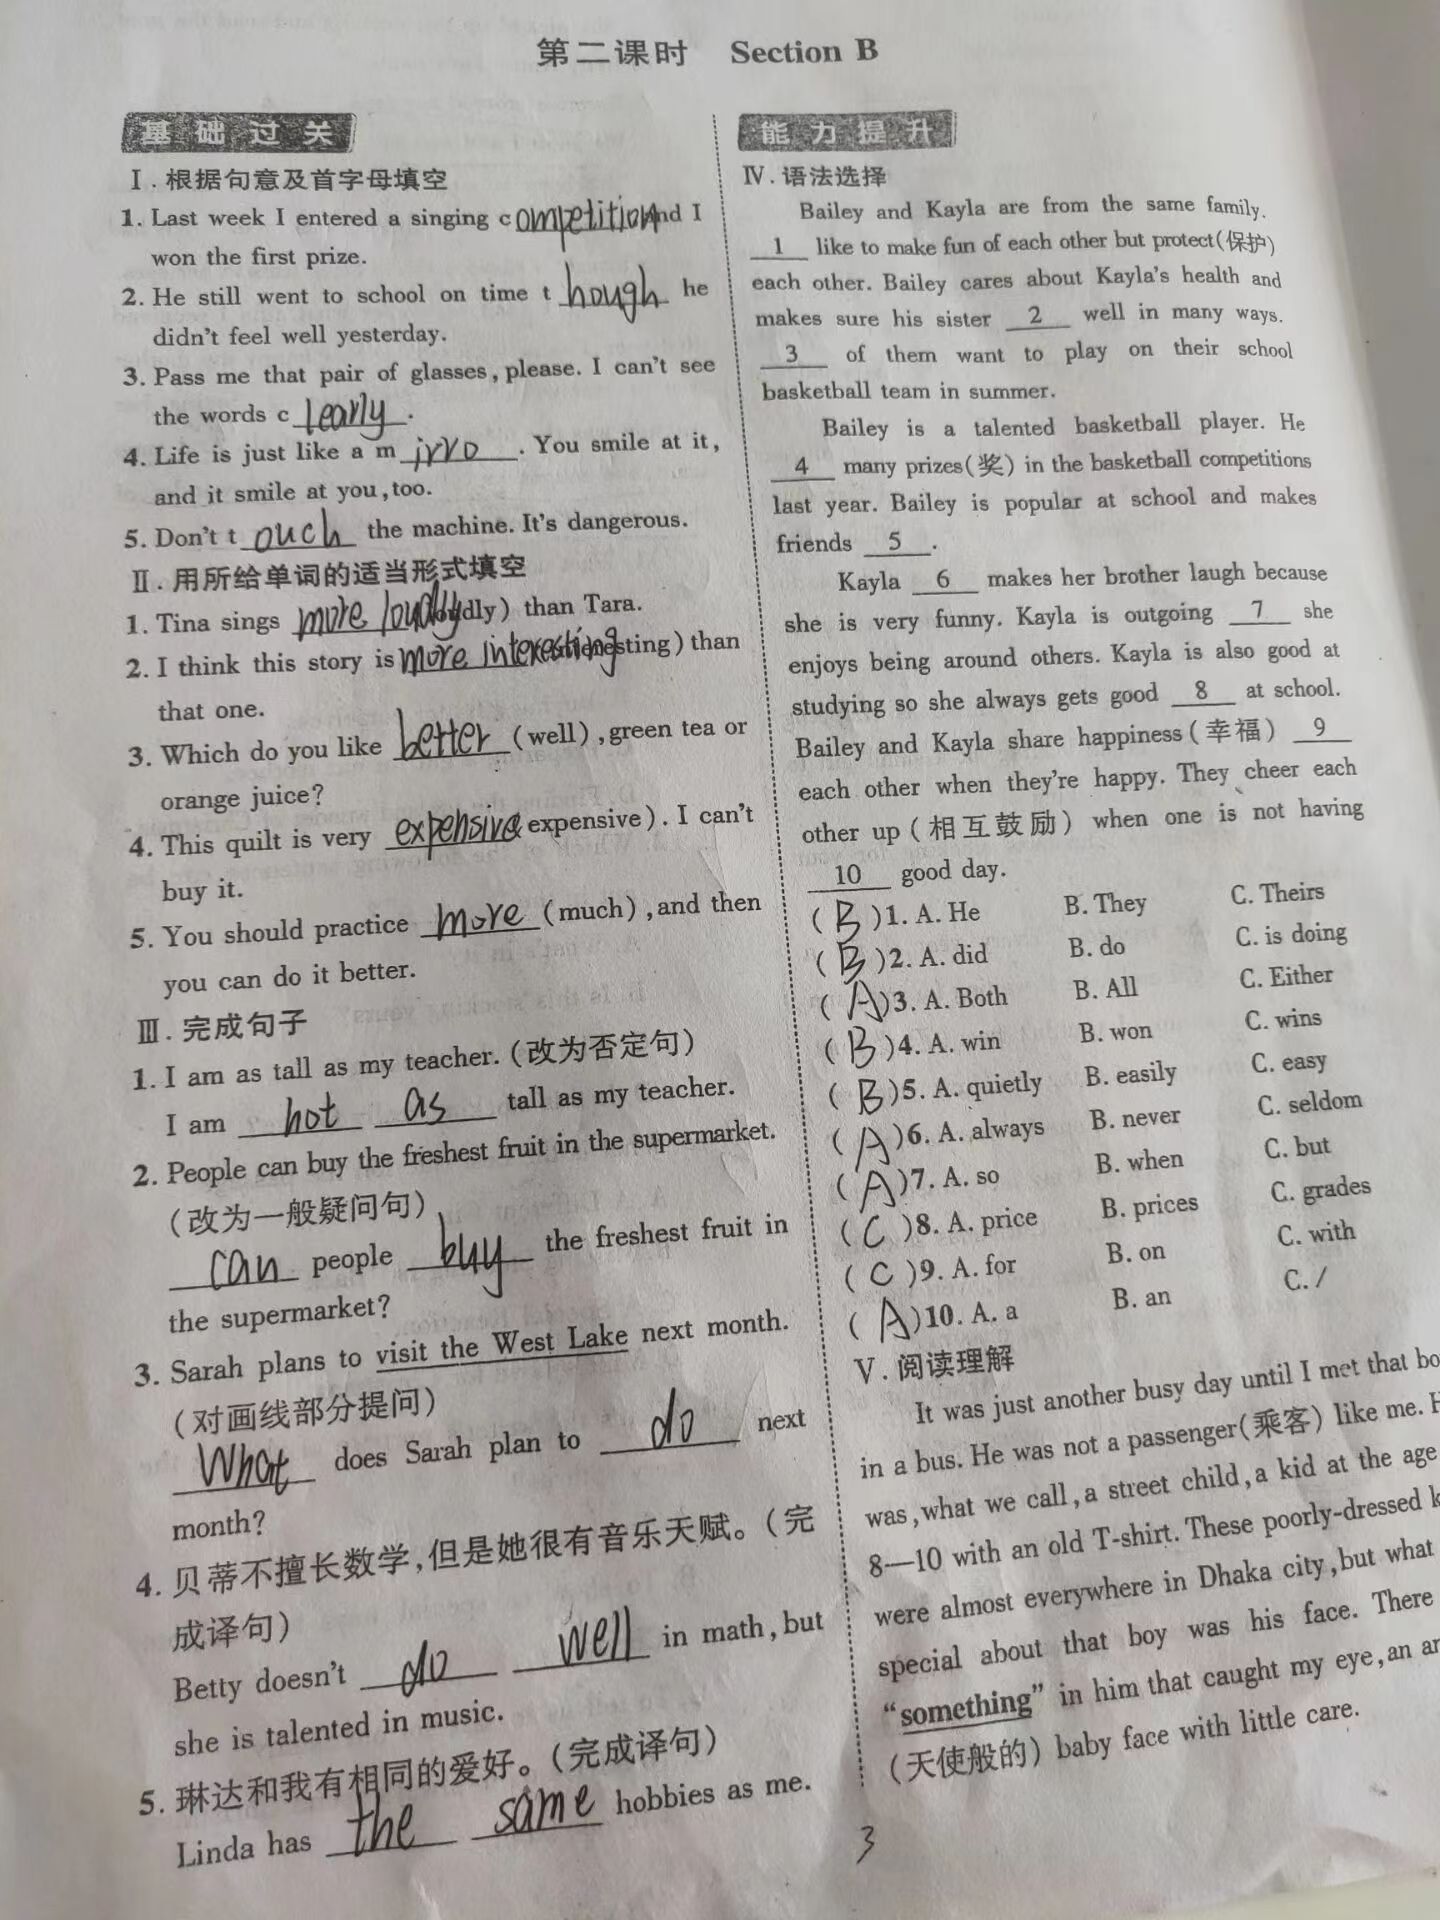 第二课时 Section B
基础过关
Ⅰ.根据句意及首字母填空
1. Last week I entered a singing competition and I
won the first prize.
2. He still went to school on time t hough he
didn't feel well yesterday.
3. Pass me that pair of glasses, please. I can't see
the words c learly.
4. Life is just like a m irro. You smile at it,
and it smile at you, too.
5. Don't t ouch the machine. It's dangerous.
Ⅱ.用所给单词的适当形式填空
1. Tina sings more loudly (loudly) than Tara.
2. I think this story is more interesting (interesting) than
that one.
3. Which do you like better (well), green tea or
orange juice?
4. This quilt is very expensive (expensive). I can't
buy it.
5. You should practice more (much), and then
you can do it better.
Ⅲ.完成句子
1. I am as tall as my teacher. (改为否定句)
I am not as tall as my teacher.
2. People can buy the freshest fruit in the supermarket.
(改为一般疑问句)
can people buy the freshest fruit in
the supermarket?
3. Sarah plans to visit the West Lake next month.
(对画线部分提问)
What does Sarah plan to do next
month?
4. 贝蒂不擅长数学,但是她很有音乐天赋。(完
成译句)
Betty doesn't do well in math, but
she is talented in music.
5. 琳达和我有相同的爱好。(完成译句)
Linda has the same hobbies as me.
能力提升
Ⅳ.语法选择
Bailey and Kayla are from the same family.
1 like to make fun of each other but protect(保护)
each other. Bailey cares about Kayla's health and
makes sure his sister 2 well in many ways.
3 of them want to play on their school
basketball team in summer.
Bailey is a talented basketball player. He
4 many prizes(奖) in the basketball competitions
last year. Bailey is popular at school and makes
friends 5.
Kayla 6 makes her brother laugh because
she is very funny. Kayla is outgoing 7 she
enjoys being around others. Kayla is also good at
studying so she always gets good 8 at school.
Bailey and Kayla share happiness(幸福) 9
each other when they're happy. They cheer each
other up(相互鼓励) when one is not having
10 good day.
(B)1. A. He B. They C. Theirs
(B)2. A. did B. do C. is doing
(A)3. A. Both B. All C. Either
(B)4. A. win B. won C. wins
(B)5. A. quietly B. easily C. easy
(A)6. A. always B. never C. seldom
(A)7. A. so B. when C. but
(C)8. A. price B. prices C. grades
(C)9. A. for B. on C. with
(A)10. A. a B. an C. /
Ⅴ.阅读理解
It was just another busy day until I met that
in a bus. He was not a passenger(乘客) like me.
was, what we call, a street child, a kid at the age
8—10 with an old T-shirt. These poorly-dressed
were almost everywhere in Dhaka city, but what
special about that boy was his face. There
"something" in him that caught my eye, an
(天使般的) baby face with little care.
3